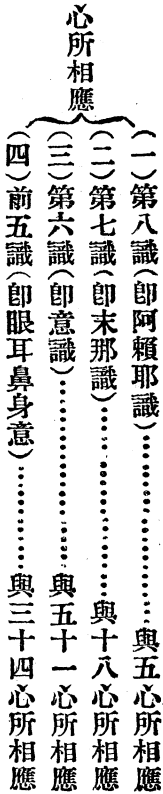 心所相應
(一)第八識(卽阿賴耶識)⋯⋯⋯⋯⋯⋯與五心所相應
(二)第七識(卽末那識)⋯⋯⋯⋯⋯⋯與十八心所相應
(三)第六識(卽意識)⋯⋯⋯⋯⋯⋯與五十一心所相應
(四)前五識(卽眼耳鼻身意)⋯⋯⋯⋯與三十四心所相應